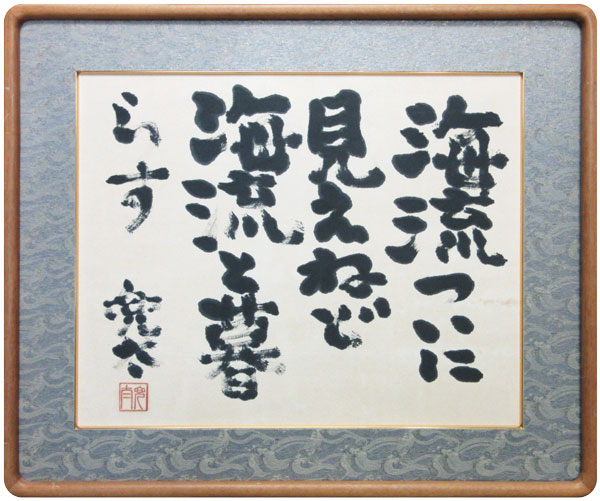 海流ついに
見えねど
海流と暮
らす 兜太